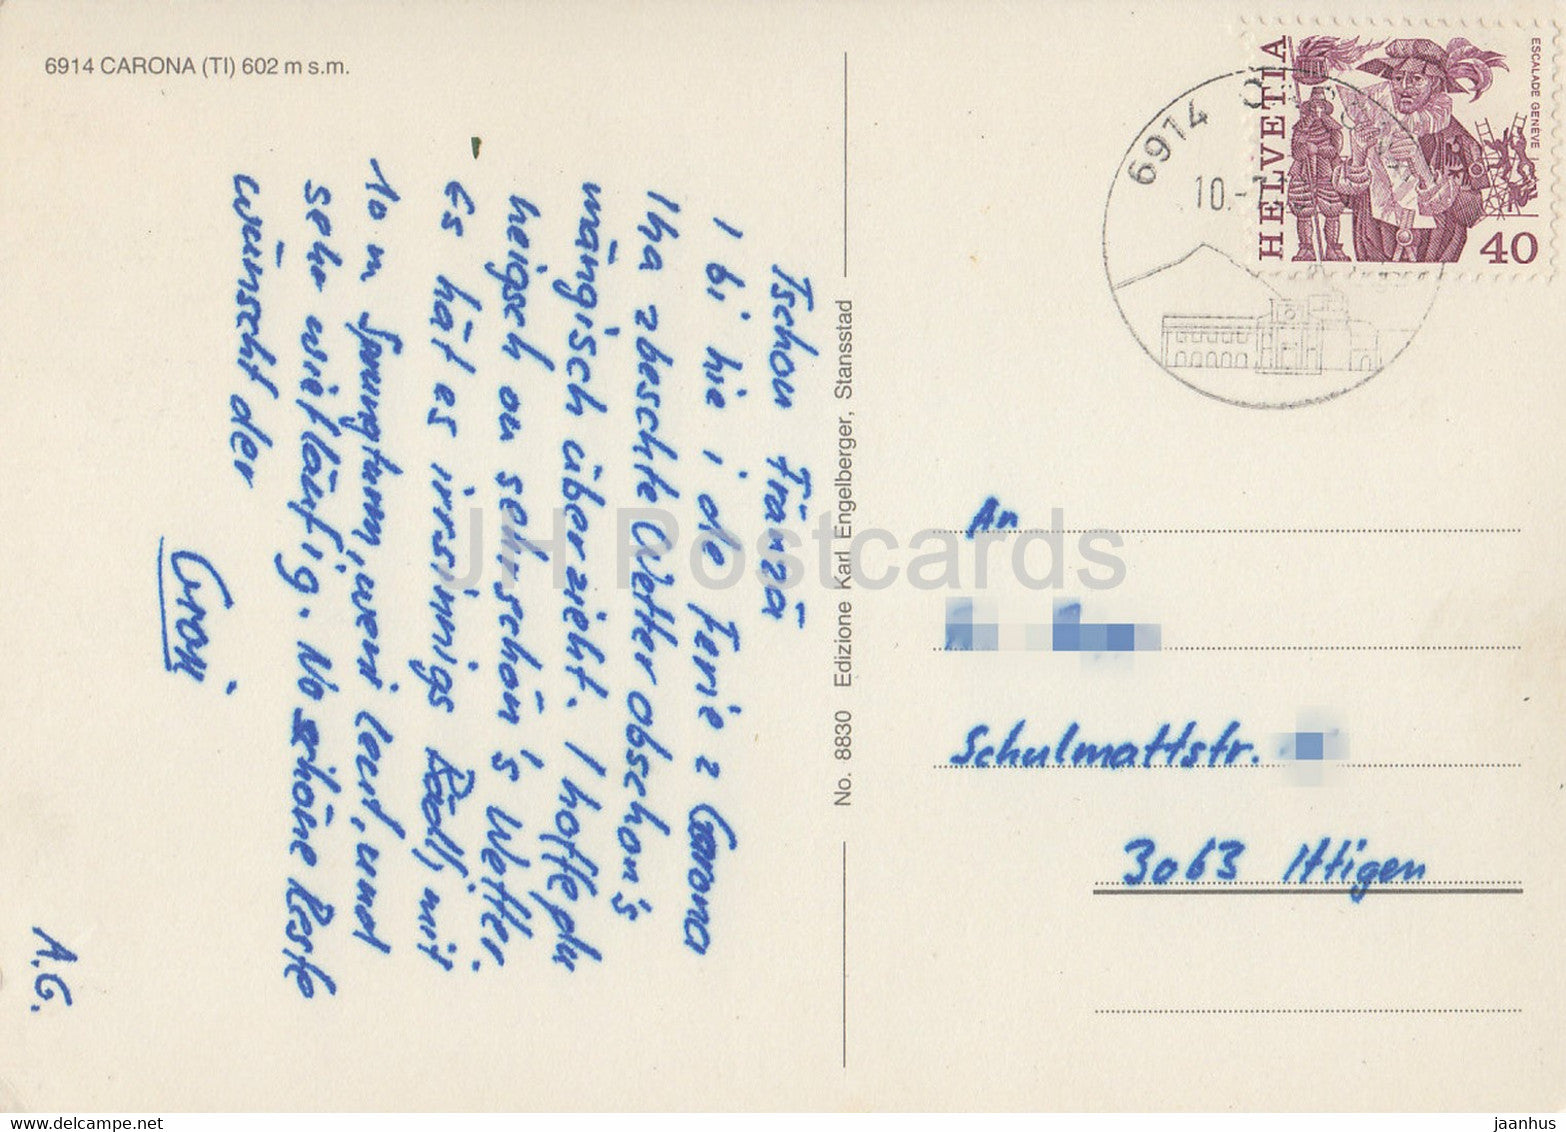 6914 CARONA (TI) 602 m s.m.
Tschou Fränzä
I bi hie i de Ferie z Carona
I ha zbeschte Wetter obschon's
mängisch überzieht. I hoffe du
heigsch ou sehr schön's Wetter.
Es hät es irrsinnigs Bädli, mit
10 m Sprungturm, weni leert, und
sehr wietläufig. No schöne Reste
wünscht der
A.G.
No. 8830 Edizione Karl Engelberger, Stansstad
HELVETIA
ESCALADE GENEVE
40
6914
10.-7.
An
Schulmattstr.
3063 Ittigen
JH Postcards
jaanhus
www.delcampe.net